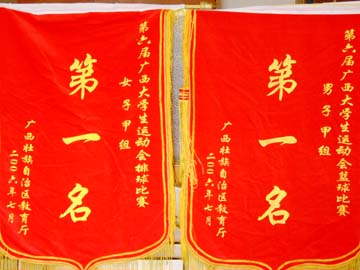 第六届广西大学生运动会排球比赛
女子甲组
第一名
广西壮族自治区教育厅
二00六年七月
第六届广西大学生运动会篮球比赛
男子甲组
第一名
广西壮族自治区教育厅
二00六年七月